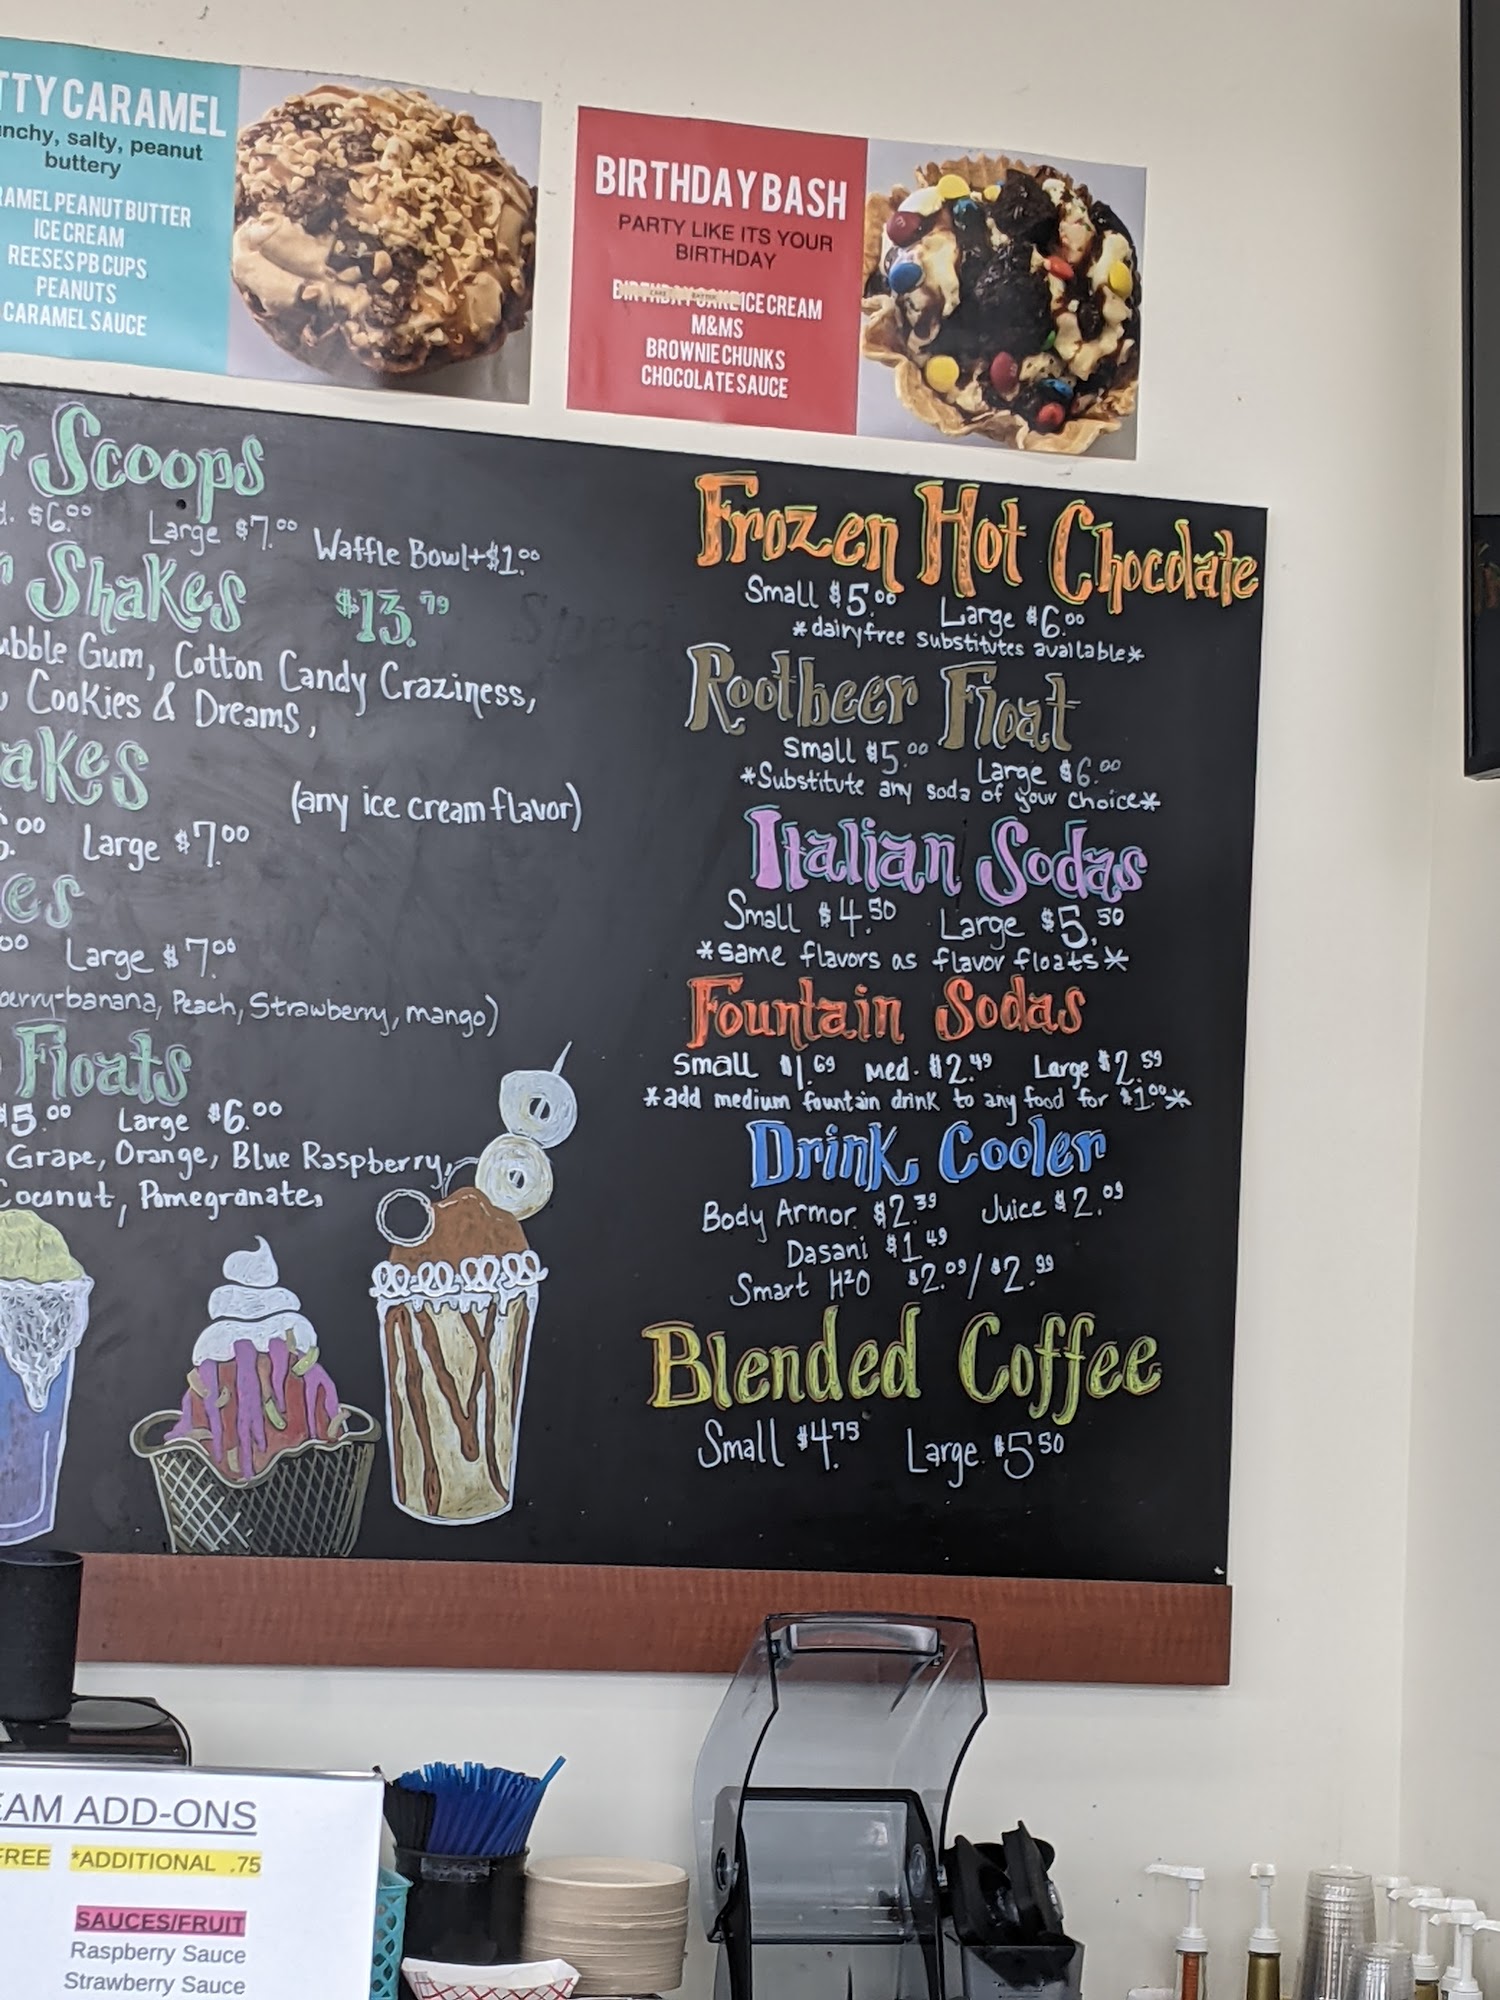 TTY CARAMEL
nchy, salty, peanut
buttery
RAMEL PEANUT BUTTER
ICE CREAM
REESES PB CUPS
PEANUTS
CARAMEL SAUCE
BIRTHDAY BASH
PARTY LIKE ITS YOUR
BIRTHDAY
BIRTHDAY CAKE ICE CREAM
CAKE BATTER
M&MS
BROWNIE CHUNKS
CHOCOLATE SAUCE
r Scoops
d. $6.00 Large $7.00 Waffle Bowl+$1.00
r Shakes $13.79
ubble Gum, Cotton Candy Craziness,
Cookies & Dreams,
akes (any ice cream flavor)
.00 Large $7.00
es
00 Large $7.00
berry-banana, Peach, Strawberry, mango)
Floats
$5.00 Large $6.00
Grape, Orange, Blue Raspberry,
Coconut, Pomegranate,
Frozen Hot Chocolate
Small $5.00 Large $6.00
*dairyfree substitutes available*
Rootbeer Float
Small $5.00 Large $6.00
*Substitute any soda of your choice*
Italian Sodas
Small $4.50 Large $5.50
*same flavors as flavor floats*
Fountain Sodas
Small $1.69 med. $2.49 Large $2.59
*add medium fountain drink to any food for $1.00*
Drink Cooler
Body Armor $2.39 Juice $2.09
Dasani $1.49
Smart H2O $2.09/$2.99
Blended Coffee
Small $4.75 Large $5.50
EAM ADD-ONS
FREE *ADDITIONAL .75
SAUCES/FRUIT
Raspberry Sauce
Strawberry Sauce